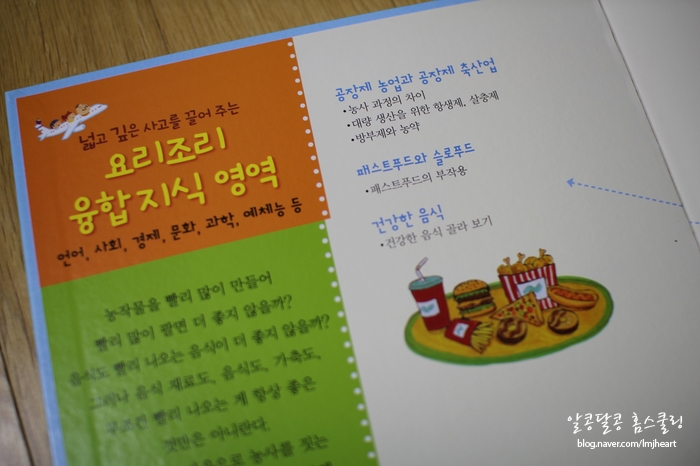 넓고 깊은 사고를 끌어 주는
요리조리
융합 지식 영역
언어, 사회, 경제, 문화, 과학, 예체능 등
농작물을 빨리 많이 만들어
빨리 많이 팔면 더 좋지 않을까?
음식도 빨리 나오는 음식이 더 좋지 않을까?
그러나 음식 재료도, 음식도, 가축도,
무조건 빨리 나오는 게 항상 좋은
것만은 아니란다.
농사를 짓는
공장제 농업과 공장제 축산업
•농사 과정의 차이
•대량 생산을 위한 항생제, 살충제
•방부제와 농약
패스트푸드와 슬로푸드
•패스트푸드의 부작용
건강한 음식
•건강한 음식 골라 보기
알콩달콩 홈스쿨링
blog.naver.com/lmjheart